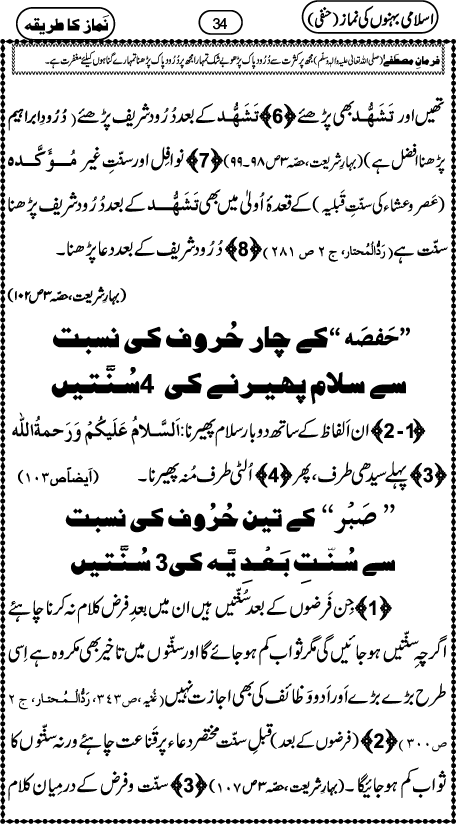 اسلامی بہنوں کی نماز (حنفی)
34
نَماز کا طریقہ
فرمانِ مصطفےٰ (صلی اللہ تعالیٰ علیہ والہ وسلم) مجھ پر کثرت سے دُرُودِ پاک پڑھو بے شک تمہارا مجھ پر دُرُودِ پاک پڑھنا تمہارے گناہوں کیلئے مغفرت ہے۔
تھیں اور تَشَہُّد بھی پڑھئے ﴿6﴾ تَشَہُّد کے بعد دُرُود شریف پڑھئے (دُرُودِ ابراہیم
پڑھنا افضل ہے) (بہارِ شریعت، حصّہ ۳ ص ۹۸۔۹۹) ﴿7﴾ نوافل اور سنّتِ غیرِ مُؤَکَّدہ
(عصر و عشاء کی سنّتِ قبلیہ) کے قعدۂ اُولیٰ میں بھی تَشَہُّد کے بعد دُرُود شریف پڑھنا
سنّت ہے (رَدُّالْمُحتار، ج ۲ ص ۲۸۱) ﴿8﴾ دُرُود شریف کے بعد دعا پڑھنا۔
(بہارِ شریعت، حصّہ ۳ ص ۱۰۲)
”حَفصَہ“ کے چار حُروف کی نسبت
سے سلام پھیرنے کی 4 سُنَّتیں
﴿1-2﴾ ان اَلفاظ کے ساتھ دو بار سلام پھیرنا: اَلسَّلَامُ عَلَیْکُمْ وَرَحمۃُ اللہ
﴿3﴾ پہلے سیدھی طرف، پھر ﴿4﴾ اُلٹی طرف مُنہ پھیرنا۔ (اَیضاً ص ۱۰۳)
”صَبْر“ کے تین حُروف کی نسبت
سے سُنّتِ بَعْدِیَّہ کی 3 سُنَّتیں
﴿1﴾ جِن فَرضوں کے بعد سُنّتیں ہیں ان میں بعدِ فرض کلام نہ کرنا چاہئے
اگرچہ سنّتیں ہو جائیں گی مگر ثواب کم ہو جائے گا اور سنّتوں میں تاخیر بھی مکروہ ہے اِسی
طرح بڑے بڑے اَوراد و وظائف کی بھی اجازت نہیں (غُنیہ، ص ۳۴۳، رَدُّالْمُحتار، ج ۲
ص ۳۰۰) ﴿2﴾ (فرضوں کے بعد) قبلِ سنّت مختصر دعاء پر قَناعت چاہئے ورنہ سنّتوں کا
ثواب کم ہو جائیگا۔ (بہارِ شریعت، حصّہ ۳ ص ۱۰۷) ﴿3﴾ سنّت و فرض کے درمِیان کلام